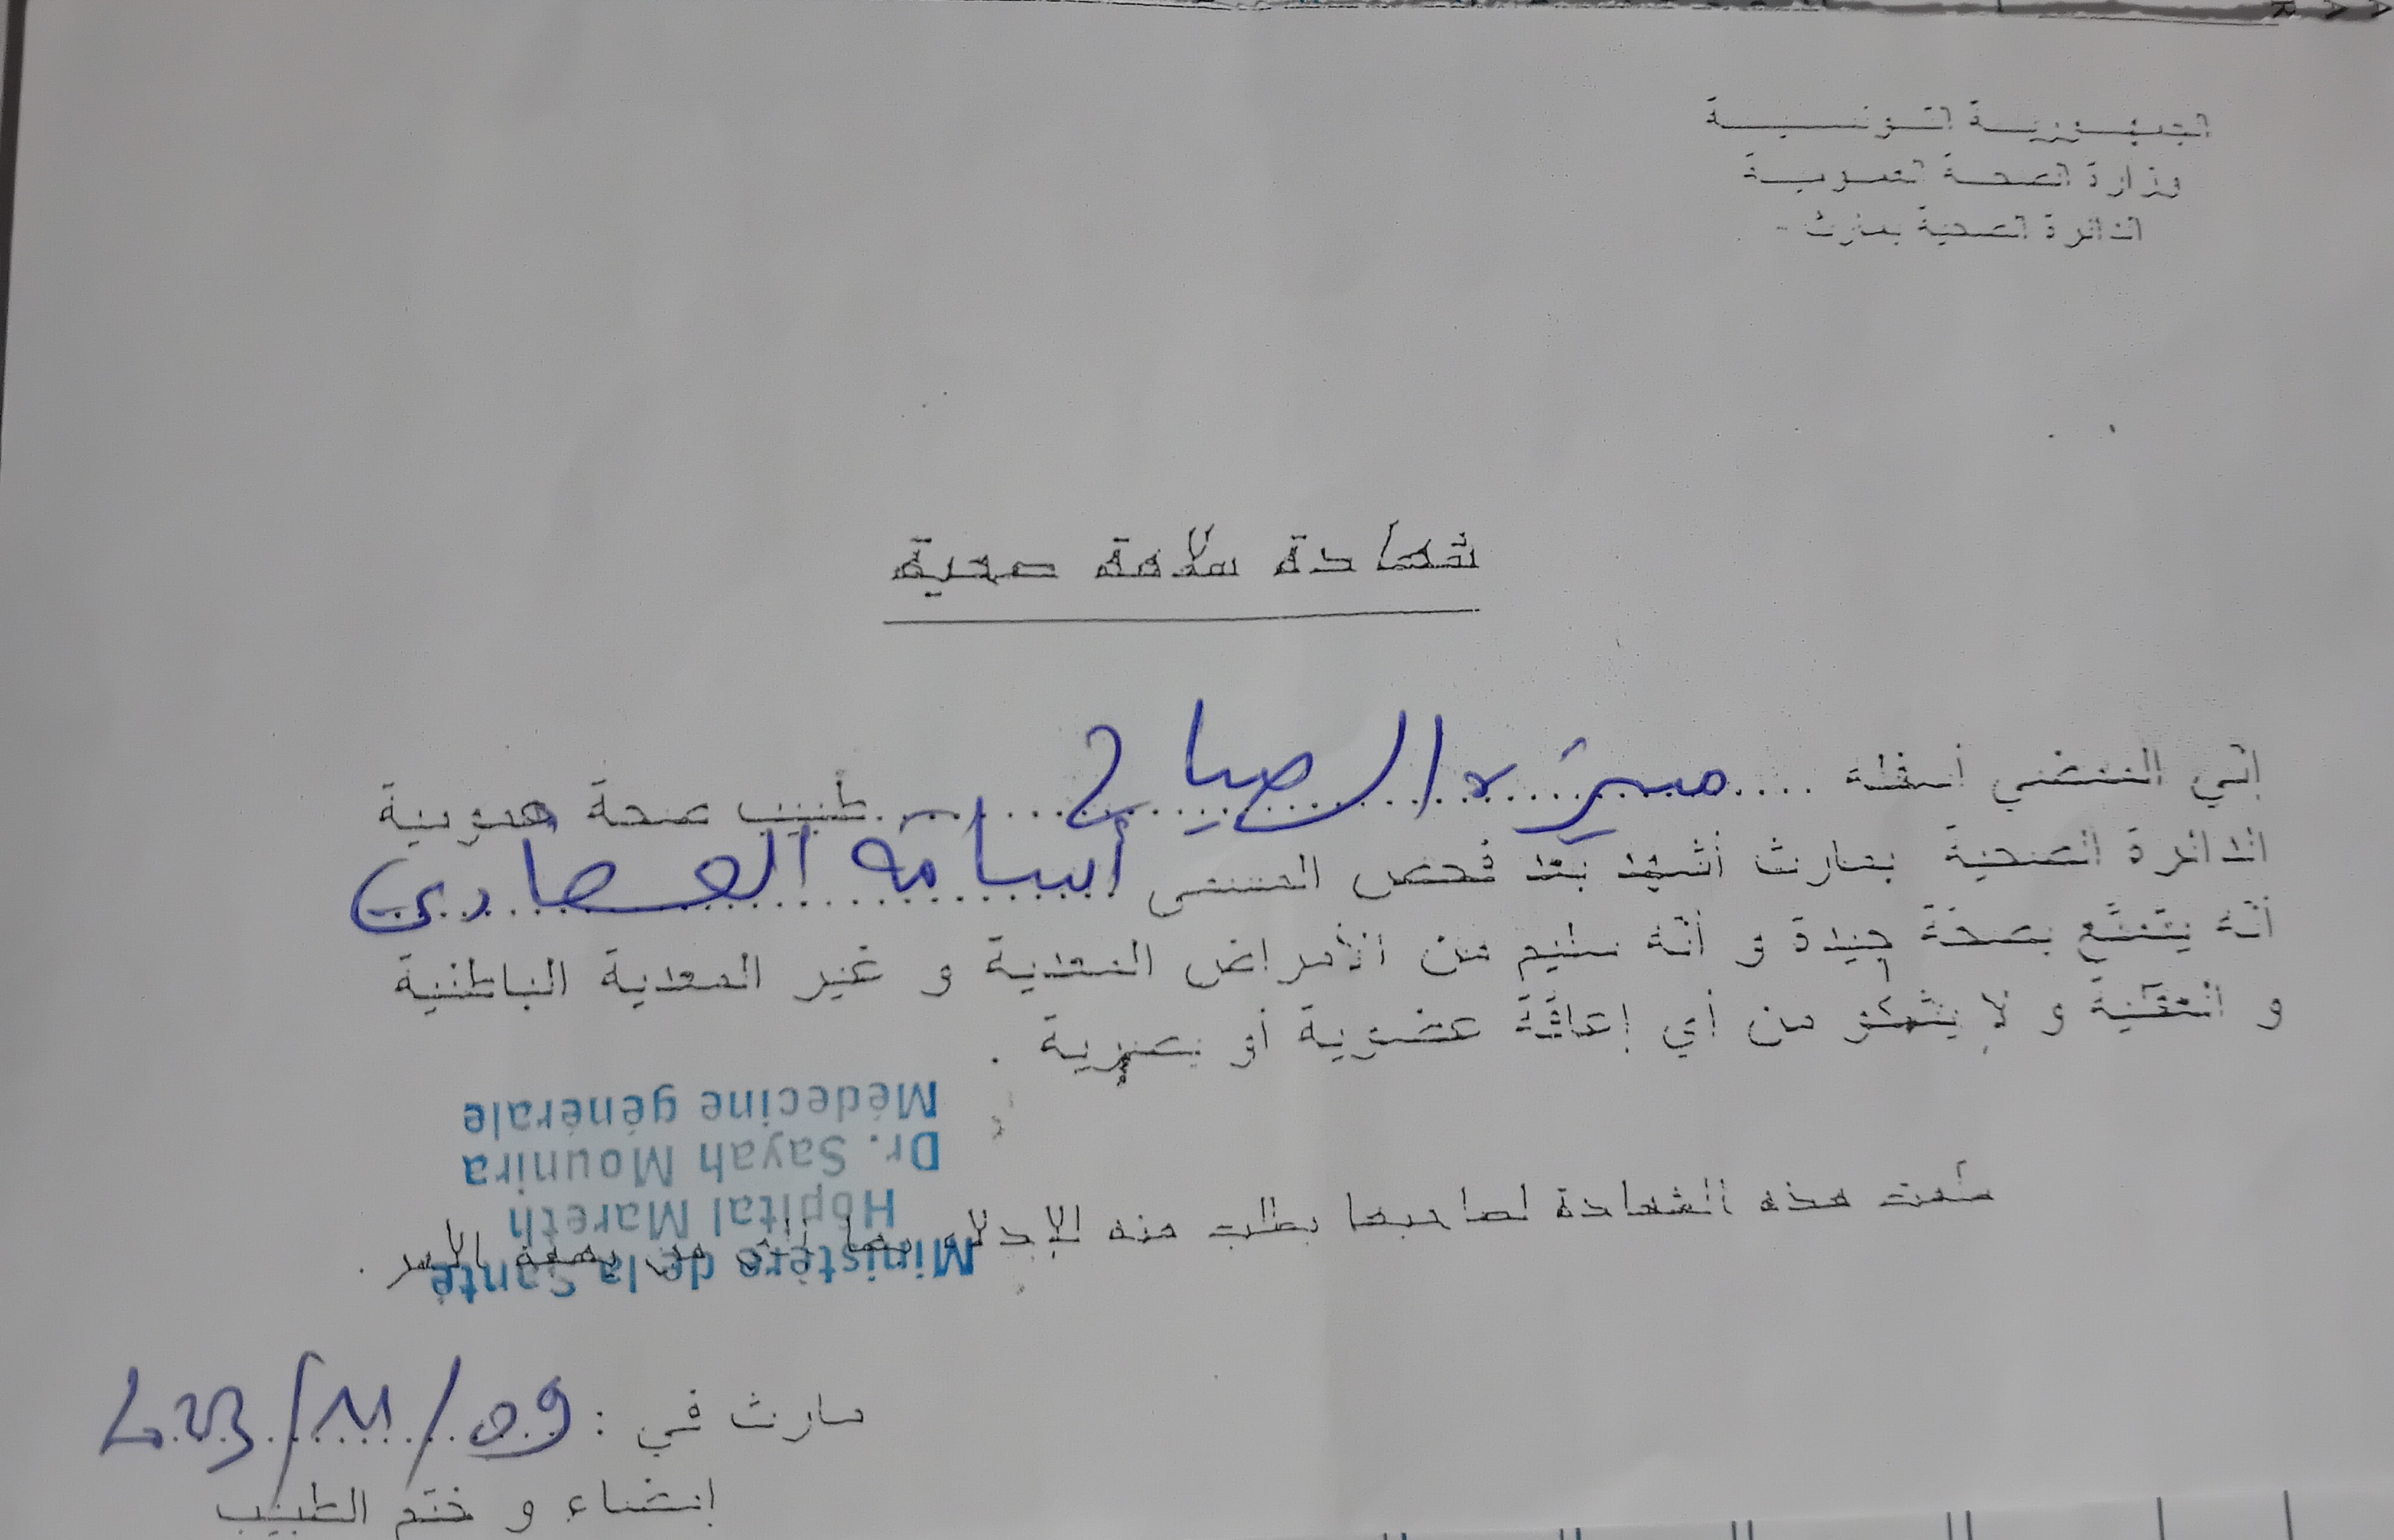 الجمهورية التونسية
وزارة الصحة العمومية
الدائرة الصحية بمارث -
شهادة سلامة صحية
إني الممضي أسفله .... منيرة الصياح .... طبيب صحة عمومية
الدائرة الصحية بمارث أشهد بعد فحص المسمى أسامة العصادي
أنه يتمتع بصحة جيدة و أنه سليم من الأمراض المعدية و غير المعدية الباطنية
و العقلية و لا يشكو من أي إعاقة عضوية أو بصرية .
Médecine générale
Dr. Sayah Mounira
Hôpital Mareth
Ministère de la Santé
سلمت هذه الشهادة لصاحبها بطلب منه للإدلاء بها لدى من يهمه الأمر .
مارث في : 09/11/2023
إمضاء و ختم الطبيب